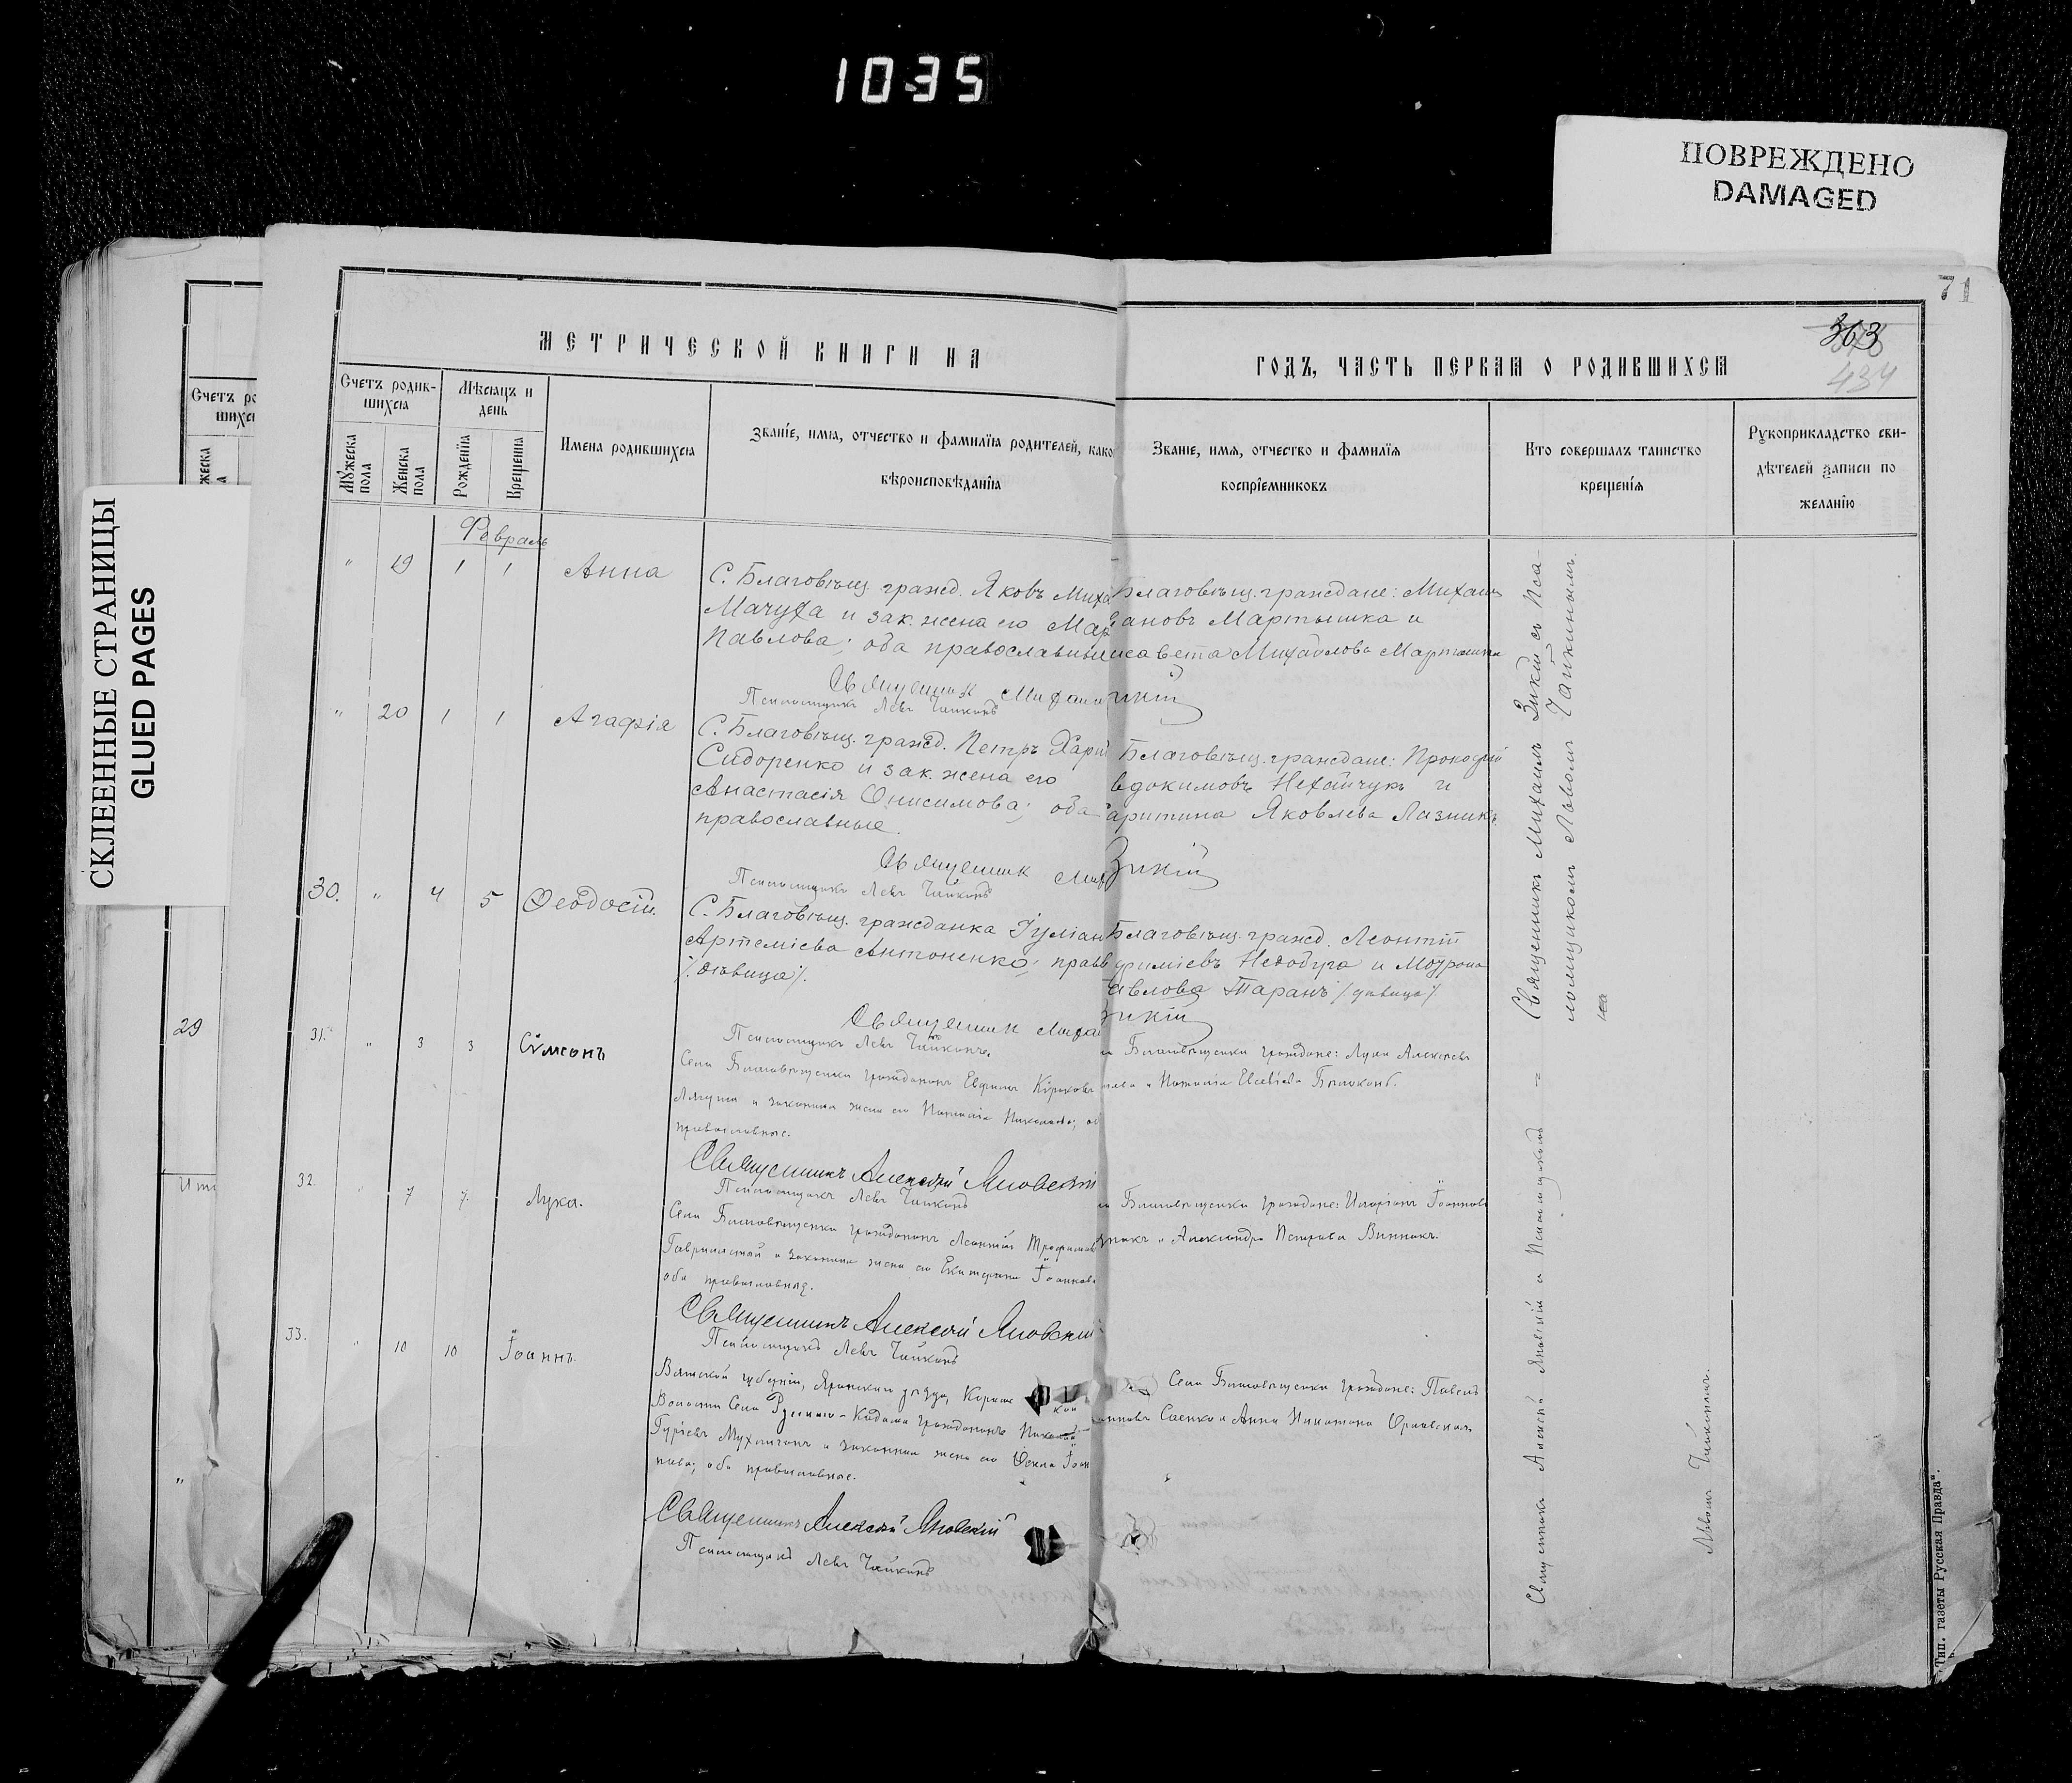 1035
ПОВРЕЖДЕНО
DAMAGED
СКЛЕЕННЫЕ СТРАНИЦЫ
GLUED PAGES
71
363
434
МЕТРИЧЕСКОЙ КНИГИ НА
ГОДЪ, ЧАСТЬ ПЕРВАЯ О РОДИВШИХСЯ
Счетъ родив-
шихся
Мѣсяцъ и
день
Мужеска
пола
Женска
пола
Рожденія
Крещенія
Имена родившихся
Званіе, имя, отчество и фамилія родителей, како
вѣроисповѣданія
Званіе, имя, отчество и фамилія
воспріемниковъ
Кто совершалъ таинство
крещенія
Рукоприкладство сви-
дѣтелей записи по
желанію
Февраль
" 19 1 1 Анна
С. Благовѣщ. гражд. Яковъ Миха
Мачуха и зак. жена его Мар
Павлова; оба православные
Благовѣщ. граждане: Михаилъ
ановъ Мартышка и
исавета Михайлова Мартышка
Священник Михаил
Зикій
Псаломщикъ Левъ Чайкинъ
" 20 1 1 Агафія
С. Благовѣщ. гражд. Петръ Харит
Сидоренко и зак. жена его
Анастасія Онисимова; оба
православные.
Благовѣщ. граждане: Прокофій
вдокимовъ Нехайчукъ и
аритина Яковлева Лазникъ
Священник Мих
Зикій
Псаломщикъ Левъ Чайкинъ
30. " 4 5 Феодосій.
С. Благовѣщ. гражданка Іуліан
Артеміева Антоненко; прав
/дѣвица/.
Благовѣщ. гражд. Леонтій
фиміевъ Недобуга и Матрона
авлова Таранъ /дѣвица/.
Священник Миха
Зикій
Псаломщикъ Левъ Чайкинъ
31. " 3 3 Сѵмеонъ
Села Благовѣщенки гражданинъ Евфимъ
и законная жена его Наталія Николаева; об
православные.
Благовѣщенки граждане: Лука Алексѣевъ
и Наталія
Священникъ Алексѣй Яновскій
Псаломщикъ Левъ Чайкинъ
32. " 7 7 Лука.
Села Благовѣщенки гражданинъ Леонтій Трофимовъ
и законная жена его Екатерина Іоаннова
оба православные.
Благовѣщенки граждане: Иларіонъ Іоанновъ
и Александра Петрова Винникъ.
Священникъ Алексѣй Яновскій
Псаломщикъ Левъ Чайкинъ
33. " 10 10 Іоаннъ.
Вятской губерніи, Яранскаго уѣзда,
Волости Села гражданинъ Николай
Гуріевъ и законная жена его Фекла Іоан
нова; оба православные.
Села Благовѣщенки граждане: Павелъ
анновъ Саенко и Анна Никитина
Священникъ Алексѣй Яновскій
Псаломщикъ Левъ Чайкинъ
Священникъ Михаилъ Зикій съ Пса-
ломщикомъ Львомъ Чайкинымъ.
Священникъ Алексѣй Яновскій и Псаломщикъ
Львомъ Чайкинымъ.
29
„Тип. газеты Русская Правда".